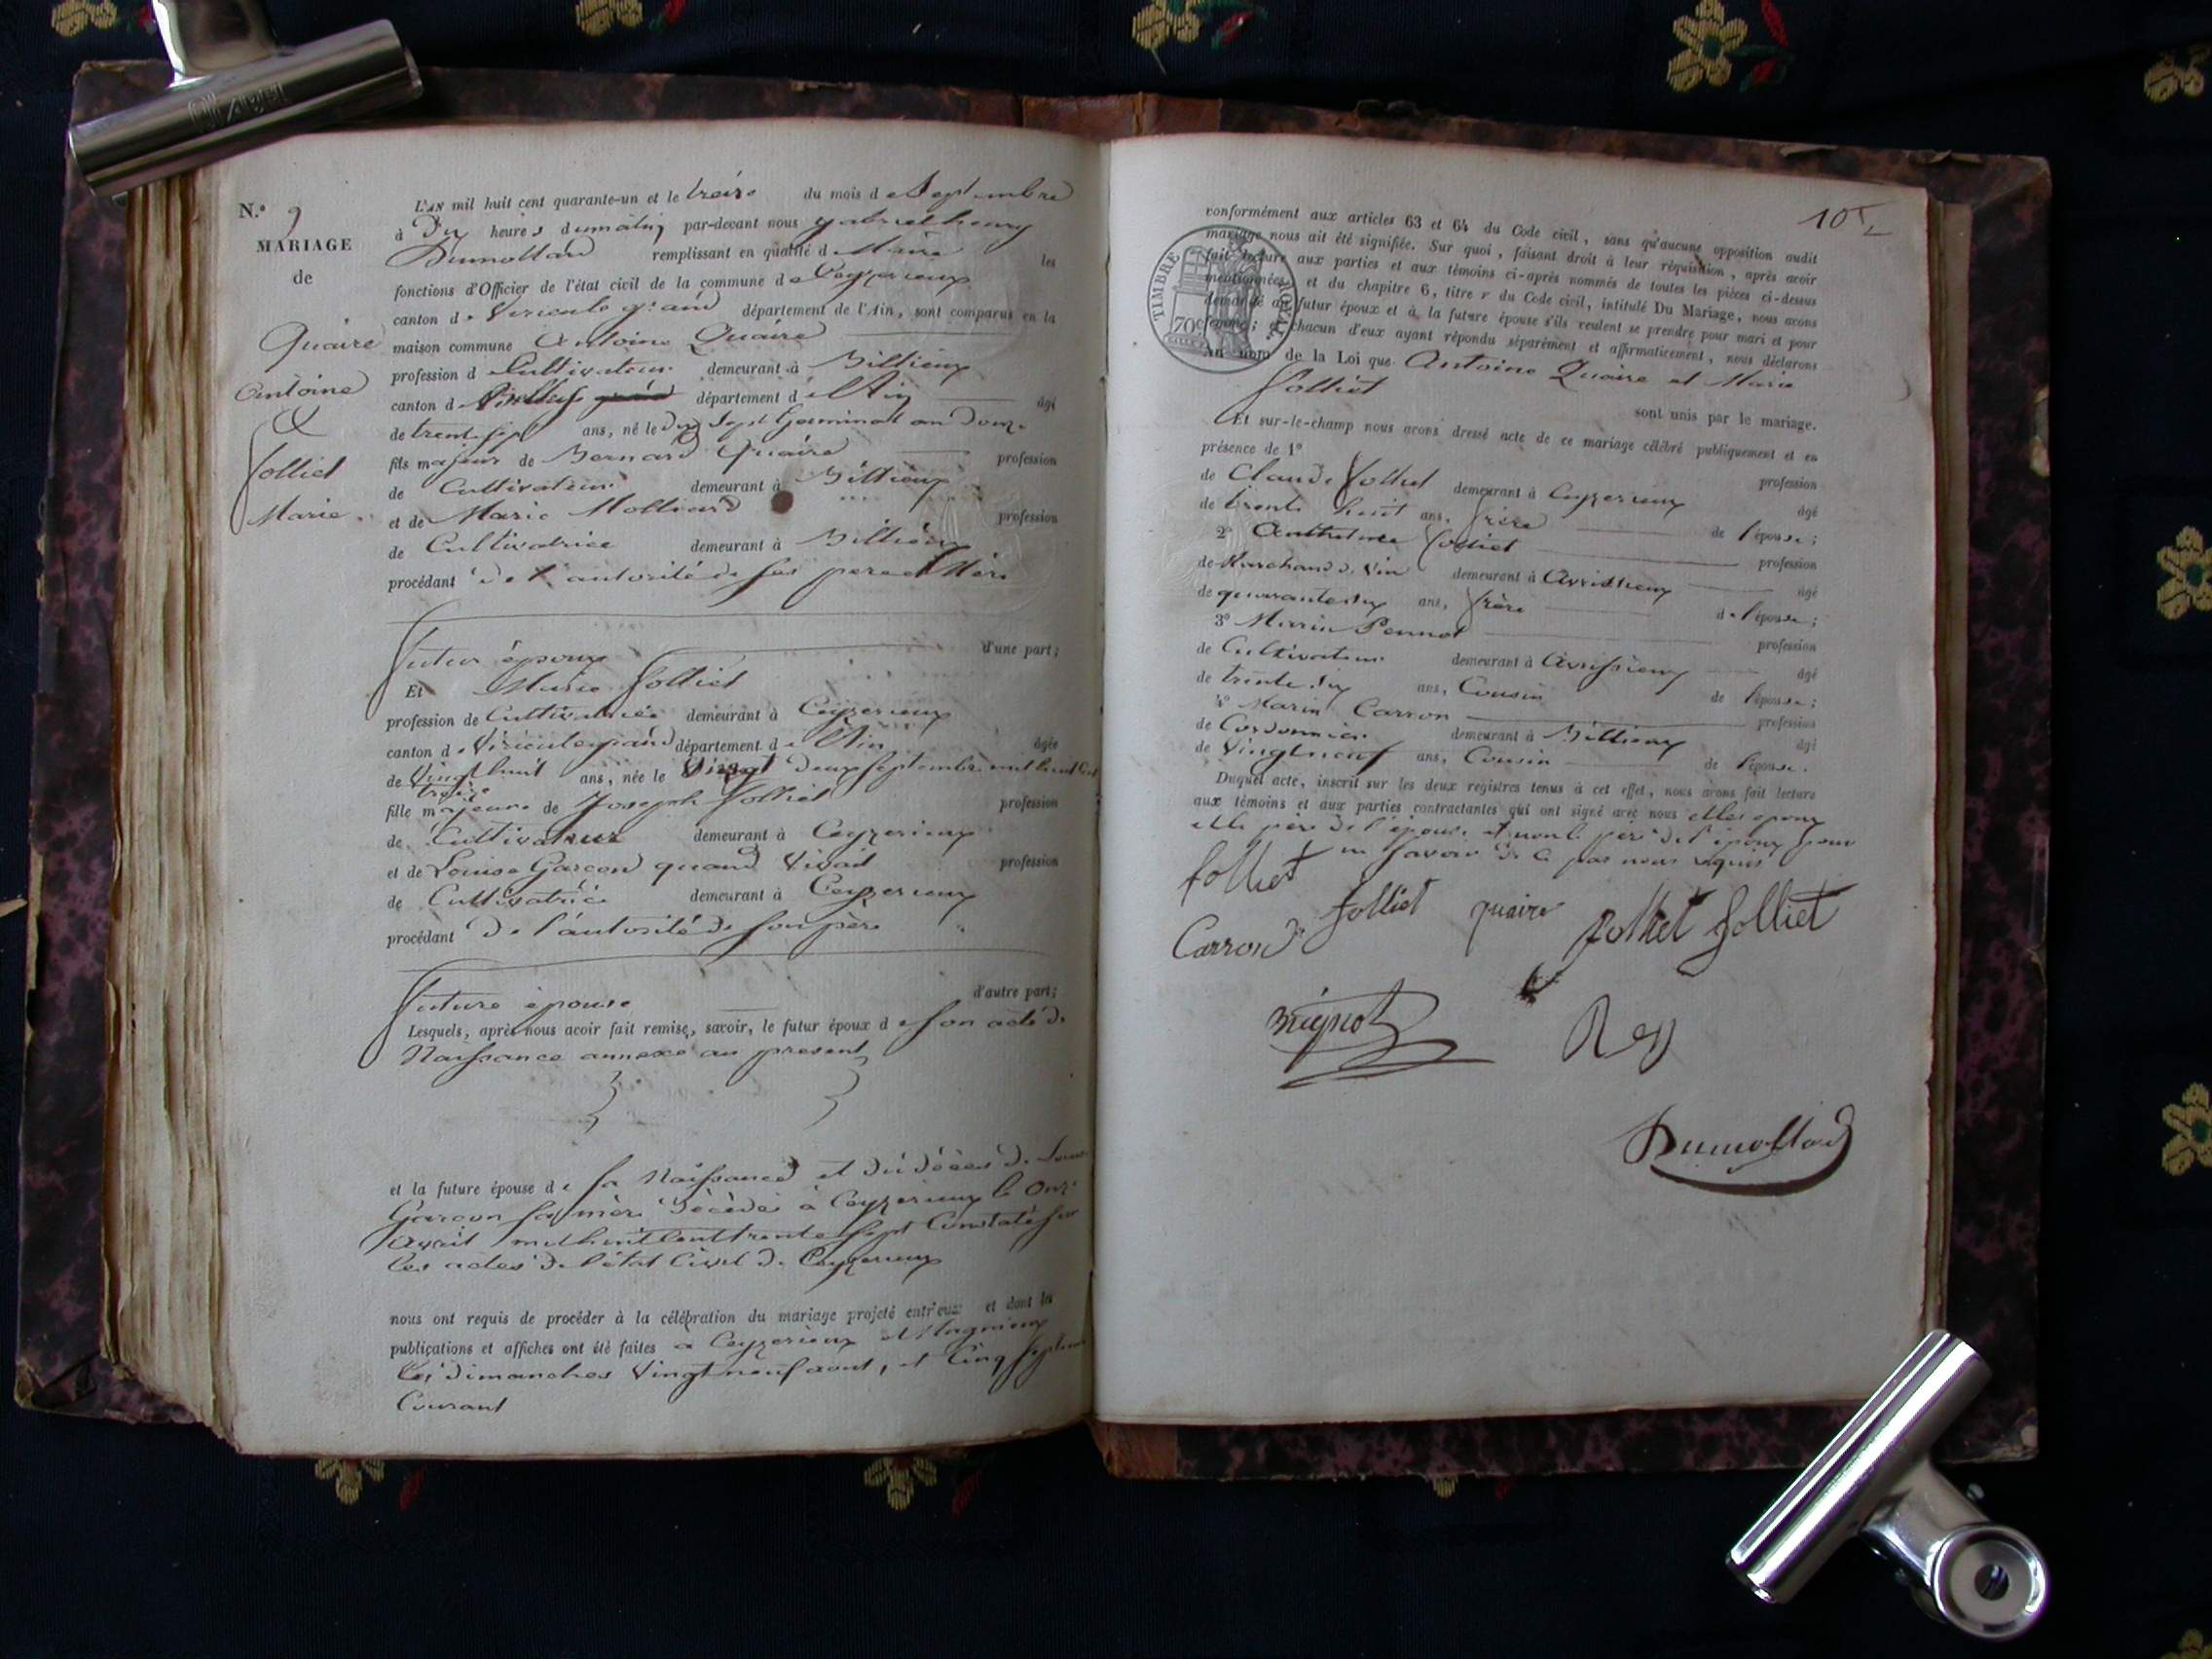 N.° 9
MARIAGE
de
Quaire
Antoine
&
Jolliet
Marie.
L'AN mil huit cent quarante-un et le treize du mois de Septembre
à Dix heures du matin par-devant nous gabriel henry
Dumollard remplissant en qualité de Maire les
fonctions d'Officier de l'état civil de la commune de Ceyzerieux
canton de Virieu le grand département de l'Ain, sont comparus en la
maison commune Antoine Quaire
profession de Cultivateur demeurant à Billieux
canton de département de l'Ain âgé
de trente sept ans, né le Dix Sept Germinal an Douze
fils majeur de Bernard Quaire profession
de Cultivateur demeurant à Billieux
et de Marie Molliard profession
de Cultivatrice demeurant à Billieux
procédant de l'autorité de ses pere et Mère
futur époux d'une part;
Et Marie Jolliet
profession de Cultivatrice demeurant à Ceyzerieux
canton de Virieu le grand département de l'Ain âgée
de Vingt huit ans, née le Vingt Deux Septembre mil huit Cent
treize
fille majeure de Joseph Jolliet profession
de Cultivateur demeurant à Ceyzerieux
et de Louise Garçon quand Vivait profession
de Cultivatrice demeurant à Ceyzerieux
procédant de l'autorité de son père
future épouse d'autre part;
Lesquels, après nous avoir fait remise, savoir, le futur époux de son acte de
Naissance annexé au présent
et la future épouse de sa Naissance et du décès de Louise
Garçon sa mère décédée à Ceyzerieux le Onze
avril mil huit Cent trente Sept Constaté sur
les actes de l'état Civil de Ceyzerieux
nous ont requis de procéder à la célébration du mariage projeté entr'eux et dont les
publications et affiches ont été faites à Ceyzerieux et Magnieux
les dimanches Vingt neuf aout, et Cinq Septembre
Courant
105
conformément aux articles 63 et 64 du Code civil, sans qu'aucune opposition audit
mariage nous ait été signifiée. Sur quoi, faisant droit à leur réquisition, après avoir
fait lecture aux parties et aux témoins ci-après nommés de toutes les pièces ci-dessus
mentionnées, et du chapitre 6, titre v du Code civil, intitulé Du Mariage, nous avons
demandé au futur époux et à la future épouse s'ils veulent se prendre pour mari et pour
femme; et chacun d'eux ayant répondu séparément et affirmativement, nous déclarons
au nom de la Loi que Antoine Quaire et Marie
Jolliet
sont unis par le mariage.
Et sur-le-champ nous avons dressé acte de ce mariage célébré publiquement et en
présence de 1°
de Claude Jolliet demeurant à Ceyzerieux profession
de trente huit ans, frère âgé
de l'épouse;
2° Anthelme Jolliet profession
de Marchand de Vin demeurant à Avrissieux âgé
de quarante six ans, frère de l'épouse;
3° Marin Pennot profession
de Cultivateur demeurant à Avrissieux âgé
de trente six ans, Cousin de l'épouse;
4° Marin Carron profession
de Cordonnier demeurant à Billieux âgé
de Vingt neuf ans, Cousin de l'épouse.
Duquel acte, inscrit sur les deux registres tenus à cet effet, nous avons fait lecture
aux témoins et aux parties contractantes qui ont signé avec nous et les epoux
et le père de l'épouse et non le père de l'époux pour
ne savoir de ce par nous requis
Jolliet
Jolliet quaire Jolliet Jolliet
Carron
Rey
Dumollard
TIMBRE ROYAL
70c